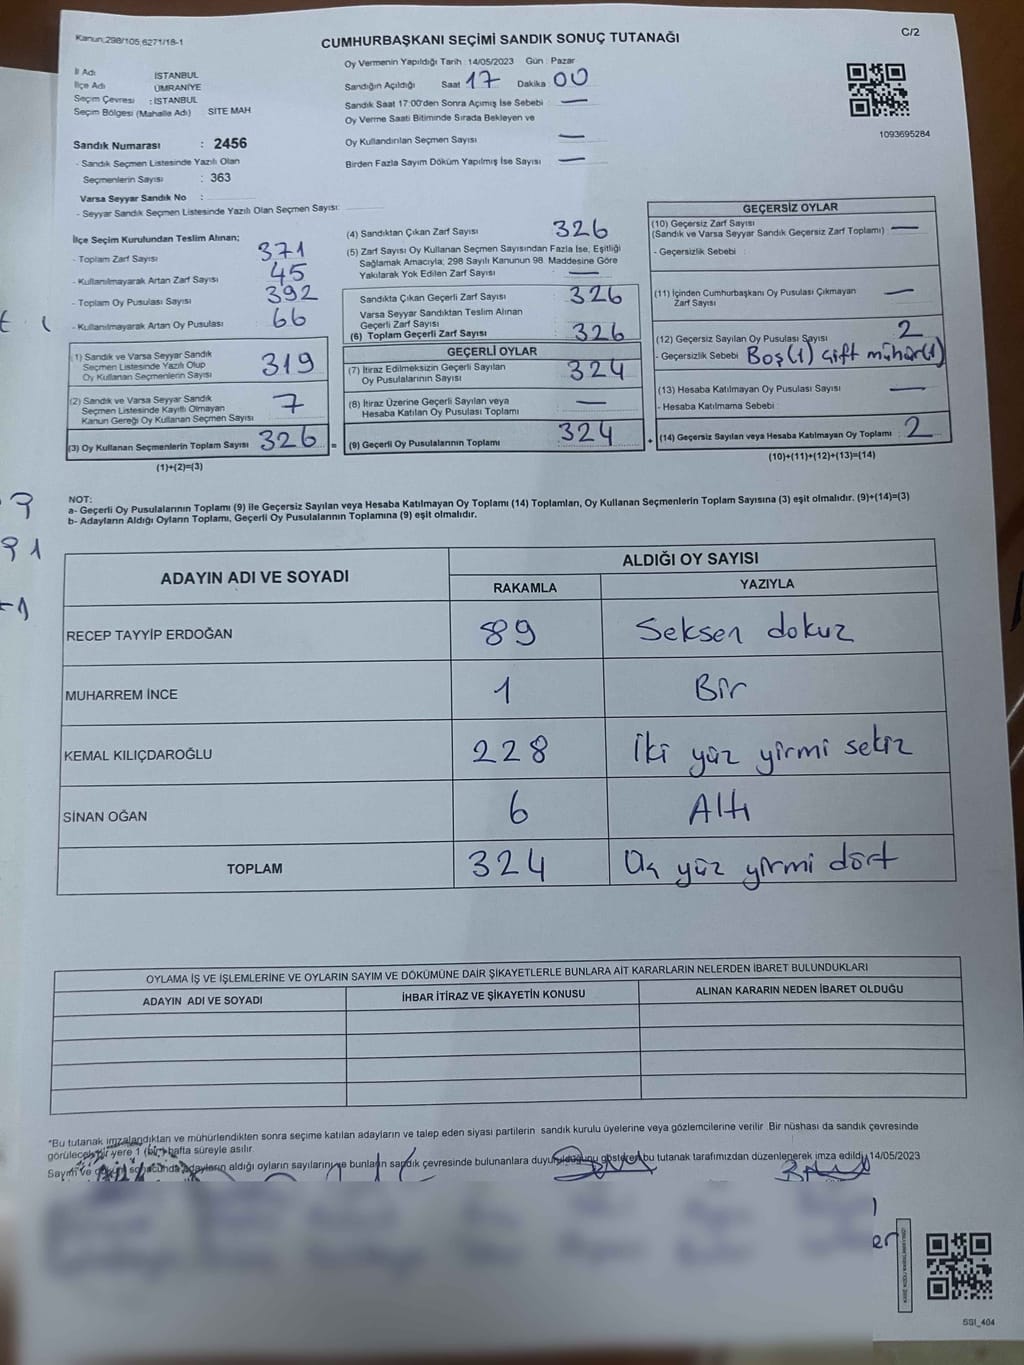 Kanun;298/105,6271/18-1
CUMHURBAŞKANI SEÇİMİ SANDIK SONUÇ TUTANAĞI
C/2
İl Adı İSTANBUL
İlçe Adı ÜMRANİYE
Seçim Çevresi : İSTANBUL
Seçim Bölgesi (Mahalle Adı) SİTE MAH
Sandık Numarası : 2456
- Sandık Seçmen Listesinde Yazılı Olan
Seçmenlerin Sayısı : 363
Varsa Seyyar Sandık No :
- Seyyar Sandık Seçmen Listesinde Yazılı Olan Seçmen Sayısı:
Oy Vermenin Yapıldığı Tarih : 14/05/2023 Gün : Pazar
Sandığın Açıldığı Saat 17 Dakika 00
Sandık Saat 17:00'den Sonra Açımış İse Sebebi —
Oy Verme Saati Bitiminde Sırada Bekleyen ve
Oy Kullandırılan Seçmen Sayısı —
Birden Fazla Sayım Döküm Yapılmış İse Sayısı —
1093695284
İlçe Seçim Kurulundan Teslim Alınan;
- Toplam Zarf Sayısı 371
- Kullanılmayarak Artan Zarf Sayısı 45
- Toplam Oy Pusulası Sayısı 392
- Kullanılmayarak Artan Oy Pusulası 66
(1) Sandık ve Varsa Seyyar Sandık
Seçmen Listesinde Yazılı Olup
Oy Kullanan Seçmenlerin Sayısı 319
(2) Sandık ve Varsa Seyyar Sandık
Seçmen Listesinde Kayıtlı Olmayan
Kanun Gereği Oy Kullanan Seçmen Sayısı 7
(3) Oy Kullanan Seçmenlerin Toplam Sayısı 326 =
(1)+(2)=(3)
(4) Sandıktan Çıkan Zarf Sayısı 326
(5) Zarf Sayısı Oy Kullanan Seçmen Sayısından Fazla İse, Eşitliği
Sağlamak Amacıyla; 298 Sayılı Kanunun 98. Maddesine Göre
Yakılarak Yok Edilen Zarf Sayısı —
Sandıkta Çıkan Geçerli Zarf Sayısı 326
Varsa Seyyar Sandıktan Teslim Alınan
Geçerli Zarf Sayısı
(6) Toplam Geçerli Zarf Sayısı 326
GEÇERLİ OYLAR
(7) İtiraz Edilmeksizin Geçerli Sayılan
Oy Pusulalarının Sayısı 324
(8) İtiraz Üzerine Geçerli Sayılan veya
Hesaba Katılan Oy Pusulası Toplamı —
(9) Geçerli Oy Pusulalarının Toplamı 324 +
GEÇERSİZ OYLAR
(10) Geçersiz Zarf Sayısı
(Sandık ve Varsa Seyyar Sandık Geçersiz Zarf Toplamı) —
- Geçersizlik Sebebi :
(11) İçinden Cumhurbaşkanı Oy Pusulası Çıkmayan
Zarf Sayısı —
(12) Geçersiz Sayılan Oy Pusulası Sayısı 2
- Geçersizlik Sebebi Boş(1) çift mühür(1)
(13) Hesaba Katılmayan Oy Pusulası Sayısı —
- Hesaba Katılmama Sebebi
(14) Geçersiz Sayılan veya Hesaba Katılmayan Oy Toplamı 2
(10)+(11)+(12)+(13)=(14)
NOT:
a- Geçerli Oy Pusulalarının Toplamı (9) ile Geçersiz Sayılan veya Hesaba Katılmayan Oy Toplamı (14) Toplamları, Oy Kullanan Seçmenlerin Toplam Sayısına (3) eşit olmalıdır. (9)+(14)=(3)
b- Adayların Aldığı Oyların Toplamı, Geçerli Oy Pusulalarının Toplamına (9) eşit olmalıdır.
ADAYIN ADI VE SOYADI
ALDIĞI OY SAYISI
RAKAMLA YAZIYLA
RECEP TAYYİP ERDOĞAN 89 Seksen dokuz
MUHARREM İNCE 1 Bir
KEMAL KILIÇDAROĞLU 228 İki yüz yirmi sekiz
SİNAN OĞAN 6 Altı
TOPLAM 324 Üç yüz yirmi dört
OYLAMA İŞ VE İŞLEMLERİNE VE OYLARIN SAYIM VE DÖKÜMÜNE DAİR ŞİKAYETLERLE BUNLARA AİT KARARLARIN NELERDEN İBARET BULUNDUKLARI
ADAYIN ADI VE SOYADI İHBAR İTİRAZ VE ŞİKAYETİN KONUSU ALINAN KARARIN NEDEN İBARET OLDUĞU
*Bu tutanak imzalandıktan ve mühürlendikten sonra seçime katılan adayların ve talep eden siyasi partilerin sandık kurulu üyelerine veya gözlemcilerine verilir. Bir nüshası da sandık çevresinde
görülecek bir yere 1 (bir) hafta süreyle asılır.
Sayım ve sonucunda adayların aldığı oyların sayılarını ve bunların sandık çevresinde bulunanlara duyurulduğunu gösteren bu tutanak tarafımızdan düzenlenerek imza edildi. 14/05/2023
SSI_404